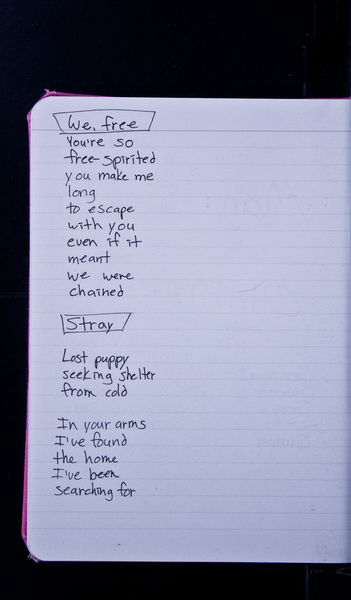 We, free
You're so
free-spirited
you make me
long
to escape
with you
even if it
meant
we were
chained
Stray
Lost puppy
seeking shelter
from cold
In your arms
I've found
the home
I've been
searching for